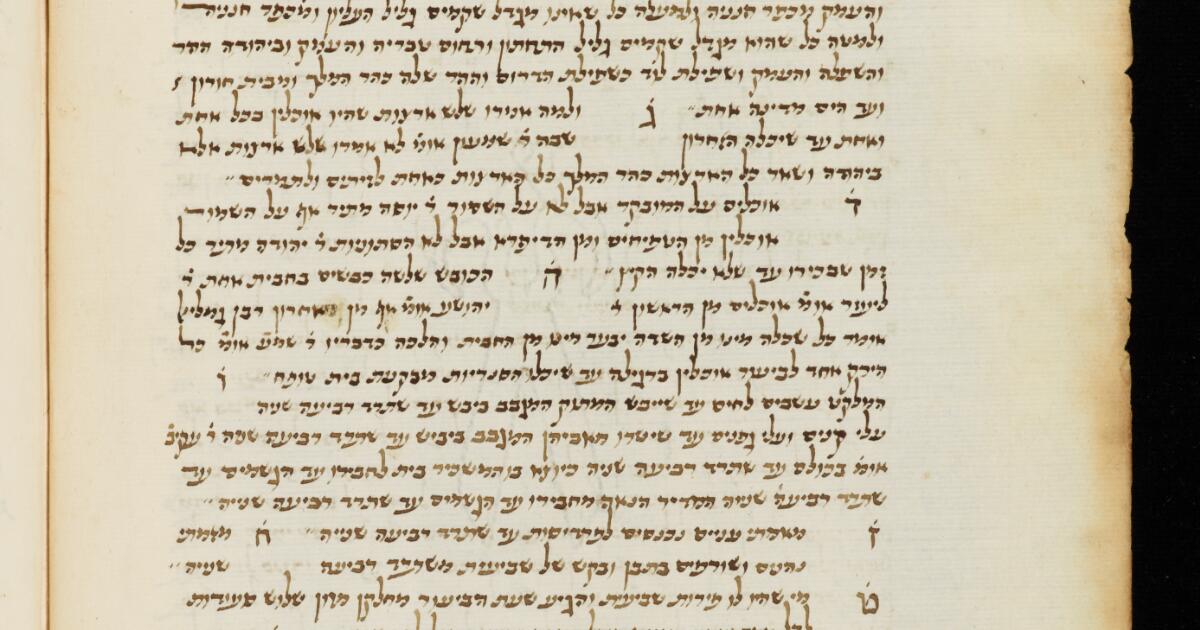 והעמק מכפר חנניה ולמעלה כל שאינו מגדל שקמים גליל העליון ומכפר חנניה
ולמטה כל שהוא מגדל שקמים גליל התחתון ותחום טבריה והעמק וביהודה ההר
והשפלה והעמק ושפילת לוד כשפילת הדרום וההר שלה כהר המלך ומבית חורון
ועד הים מדינה אחת ג ולמה אמרו שלש ארצות שהיו אוכלין בכל אחת
ואחת עד שיכלה האחרון שבה ר' שמעון אומ' לא אמרו שלש ארצות אלא
ביהודה ושאר כל הארצות כהר המלך כל הארצות כאחת לזיתים ולתמרים
ד אוכלים על המובקר אבל לא על השמור ר' יוסה מתיר אף על השמור
אוכלין מן הטפיחים ומן הדייפרא אבל לא הסתוניות ר' יהודה מתיר כל
זמן שבכירו עד שלא יכלה הקיץ ה הכובש שלשה כבשים בחבית אחת ר'
ליעזר אומ' אוכלים מן הראשון ר' יהושע אומ' אף מן האחרון רבן גמליאל
אומר כל שכלה מינו מן השדה יבער מינו מן החבית והלכה כדבריו ר' שמע' אומ' כל
הירק אחד לביעור אוכלין ברגילה עד שיכלו הסנריות מבקעת בית טופח ו
המלקט עשבים לחים עד שייבש המתוק המגבב ביבש עד שתרד רביעה שניה
עלי קנים ועלי גפנים עד שישרו מאביהן המגבב ביביש עד שתרד רביעה שניה ר' עקיב'
אומ' בכולם עד שתרד רביעה שניה כיוצא בו המשכיר בית לחבירו עד הגשמים עד
שתרד רביעה שניה המדיר הנאה מחבירו עד הגשמים עד שתרד רביעה שנייה
ז מאמתי עניים נכנסים לפרדיסות עד שתרד רביעה שנייה ח מאמתי
נהנים ושורפים בתבן ובקש של שביעית משתרד רביעה שנייה
ט מי שהיו לו פירות שביעית והגיע שעת הביעור מחלקן מזון שלוש סעודות